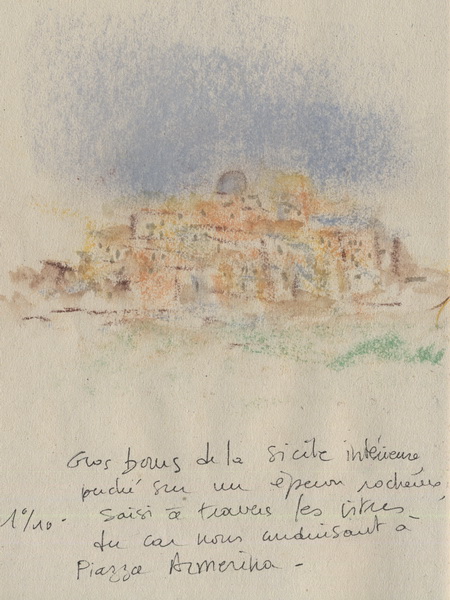 Gros bourg de la Sicile intérieure
perché sur un éperon rocheux,
1°/10 - saisi à travers les vitres
du car nous conduisant à
Piazza Armerina -